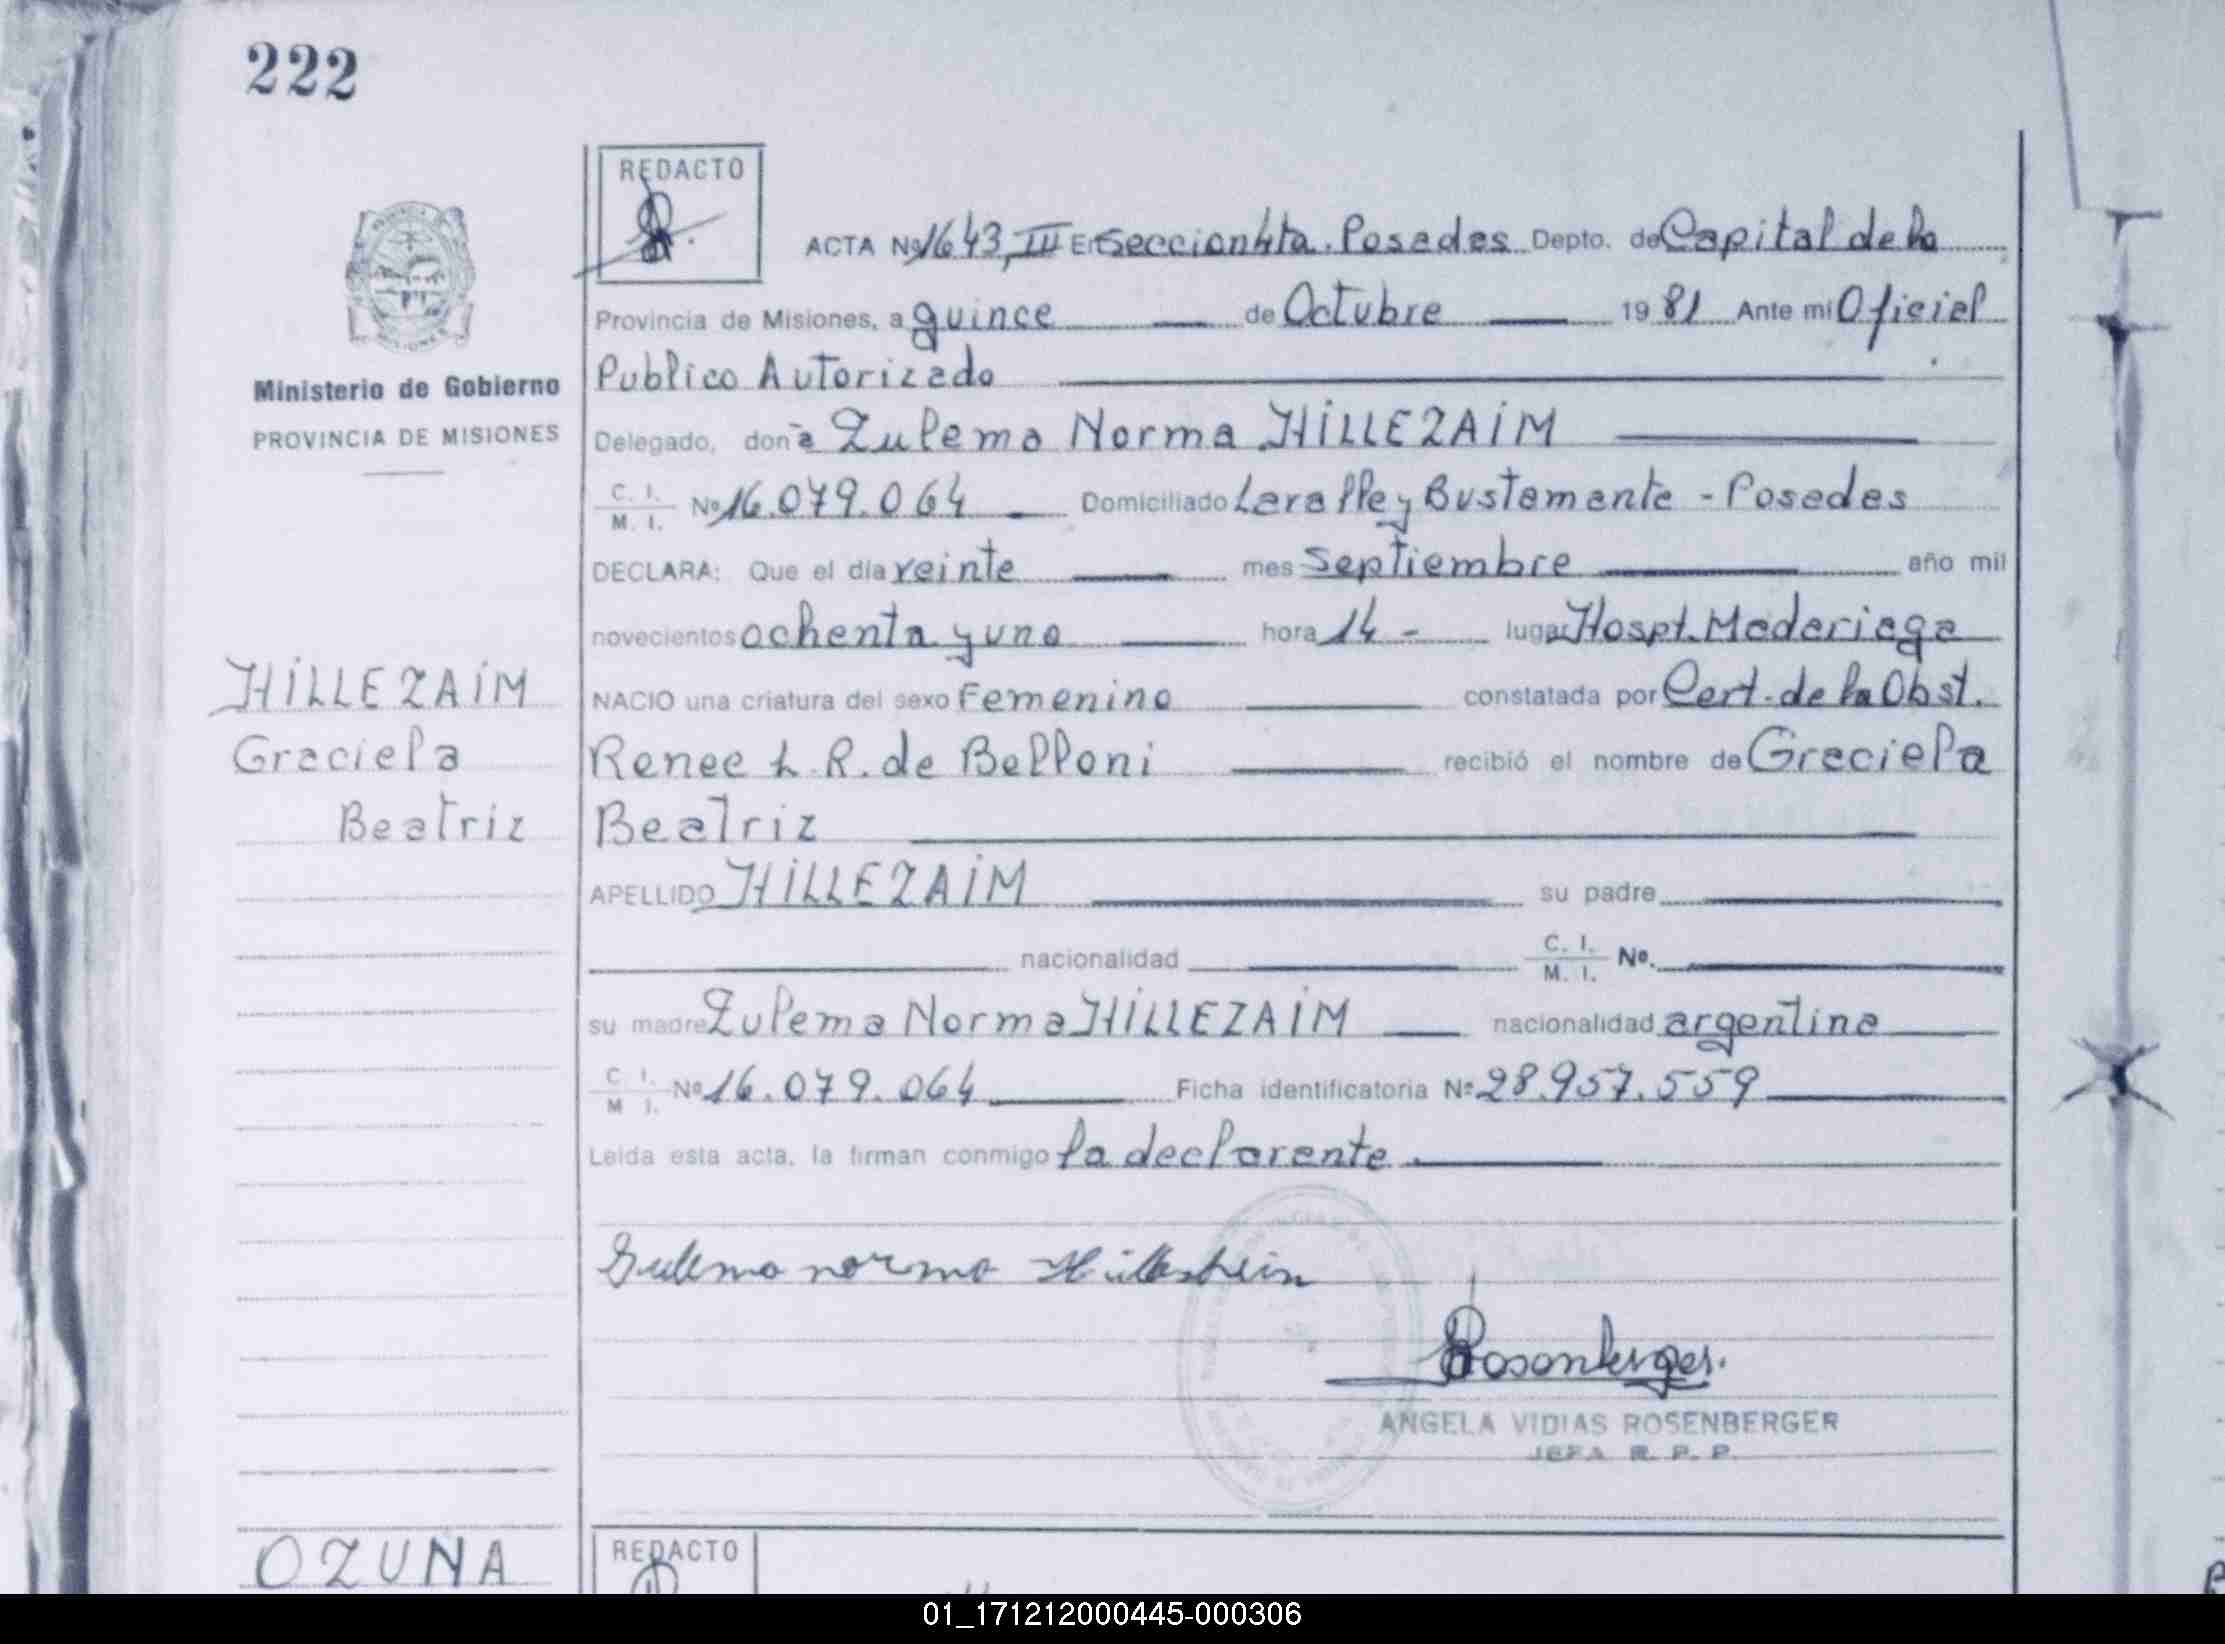 222
REDACTO
ACTA Nº 1643, III En Seccion 4ta. Posadas Depto. de Capital de la
Provincia de Misiones, a quince de Octubre 1981 Ante mi Oficial
Publico Autorizado
Ministerio de Gobierno
PROVINCIA DE MISIONES
Delegado, don a Zulema Norma HILLEZAIM
C. I. M. I. Nº 16.079.064 Domiciliado Lavalle y Bustamante - Posadas
DECLARA: Que el día veinte mes Septiembre año mil
novecientos ochenta y uno hora 14 - lugar Hospt. Madariaga
HILLEZAIM
Graciela
Beatriz
NACIO una criatura del sexo Femenino constatada por Cert. de la Obst.
Renee L. R. de Belloni recibió el nombre de Graciela
Beatriz
APELLIDO HILLEZAIM su padre
nacionalidad C. I. M. I. Nº.
su madre Zulema Norma HILLEZAIM nacionalidad argentina
C. I. M. I. Nº 16.079.064 Ficha identificatoria Nº 28.957.559
Leída esta acta, la firman conmigo la declarante.
Zulema norma
Rosenberger.
ANGELA VIDIAS ROSENBERGER
JEFA R. P. P.
OZUNA
REDACTO
01_171212000445-000306